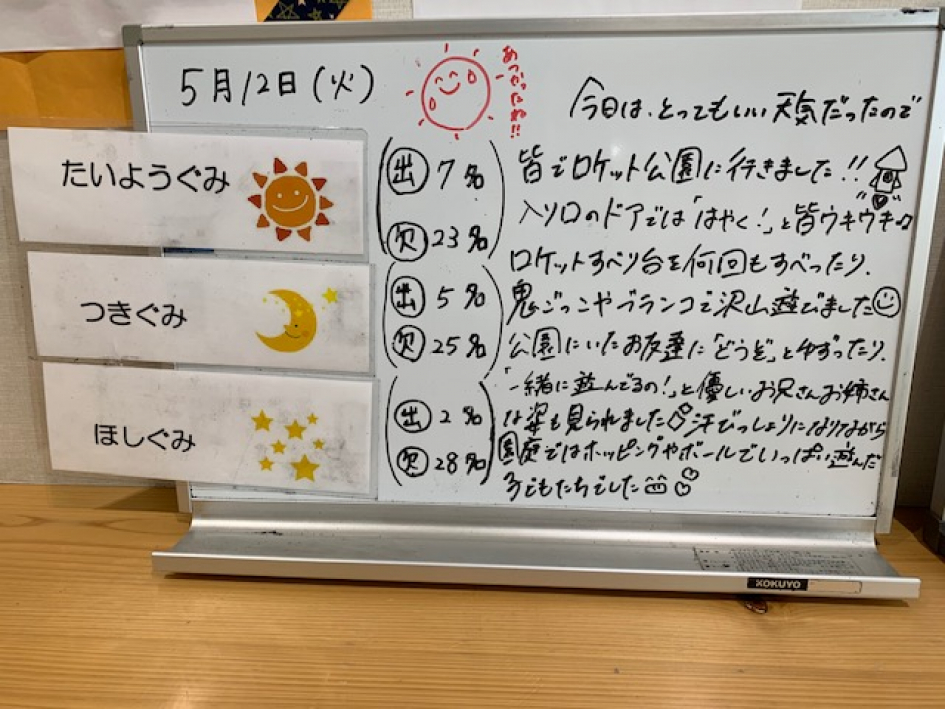 5月12日(火)
あついですね!!
たいようぐみ
出 7名
欠 23名
つきぐみ
出 5名
欠 25名
ほしぐみ
出 2名
欠 28名
今日は、とってもいい天気だったので
皆でロケット公園に行きました!!
入り口のドアでは「はやく!」と皆ウキウキ
ロケットすべり台を何回もすべったり、
鬼ごっこやブランコで沢山遊びました
公園にいたお友達に「どうぞ」とゆずったり、
「一緒に遊んでるの!」と優しいお兄さんお姉さん
な姿も見られました 汗びっしょりになりながら
園庭ではホッピングやボールでいっぱい遊んだ
子どもたちでした
KOKUYO